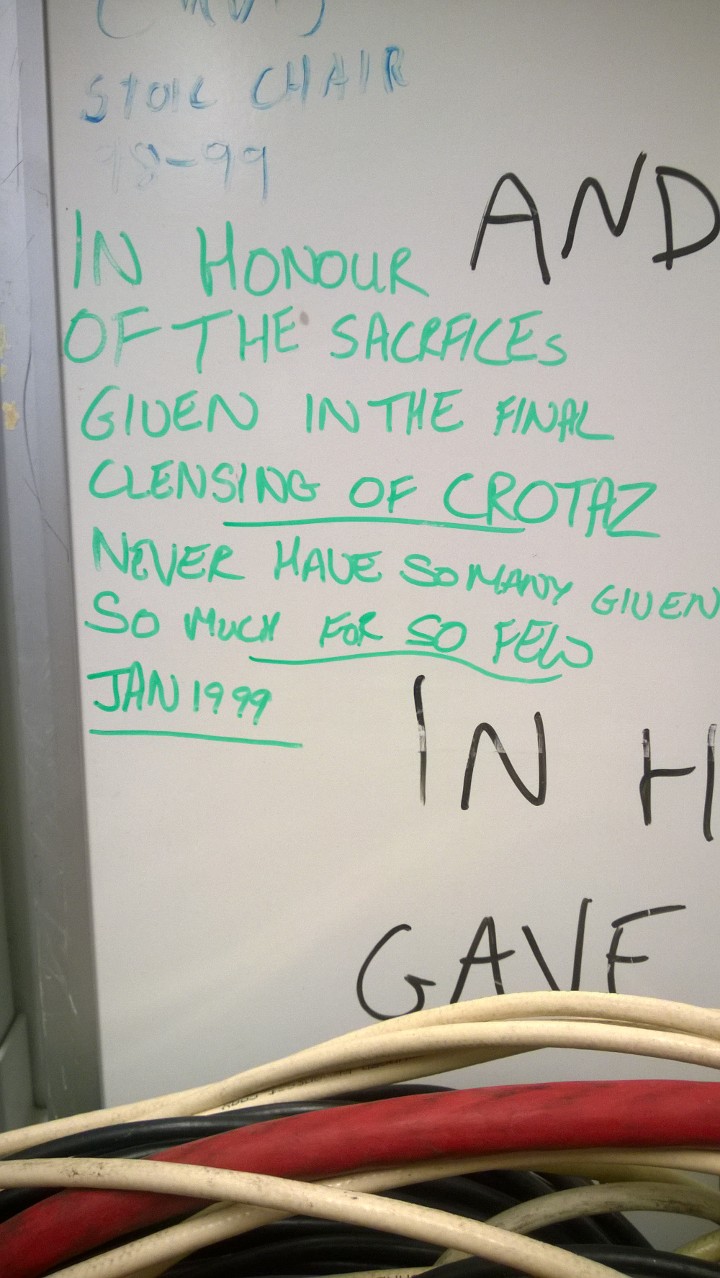 STOLE CHAIR
98-99
AND
IN HONOUR
OF THE SACRFICES
GIVEN IN THE FINAL
CLENSING OF CROTAZ
NEVER HAVE SO MANY GIVEN
SO MUCH FOR SO FEW
JAN 1999
IN H
GAVE